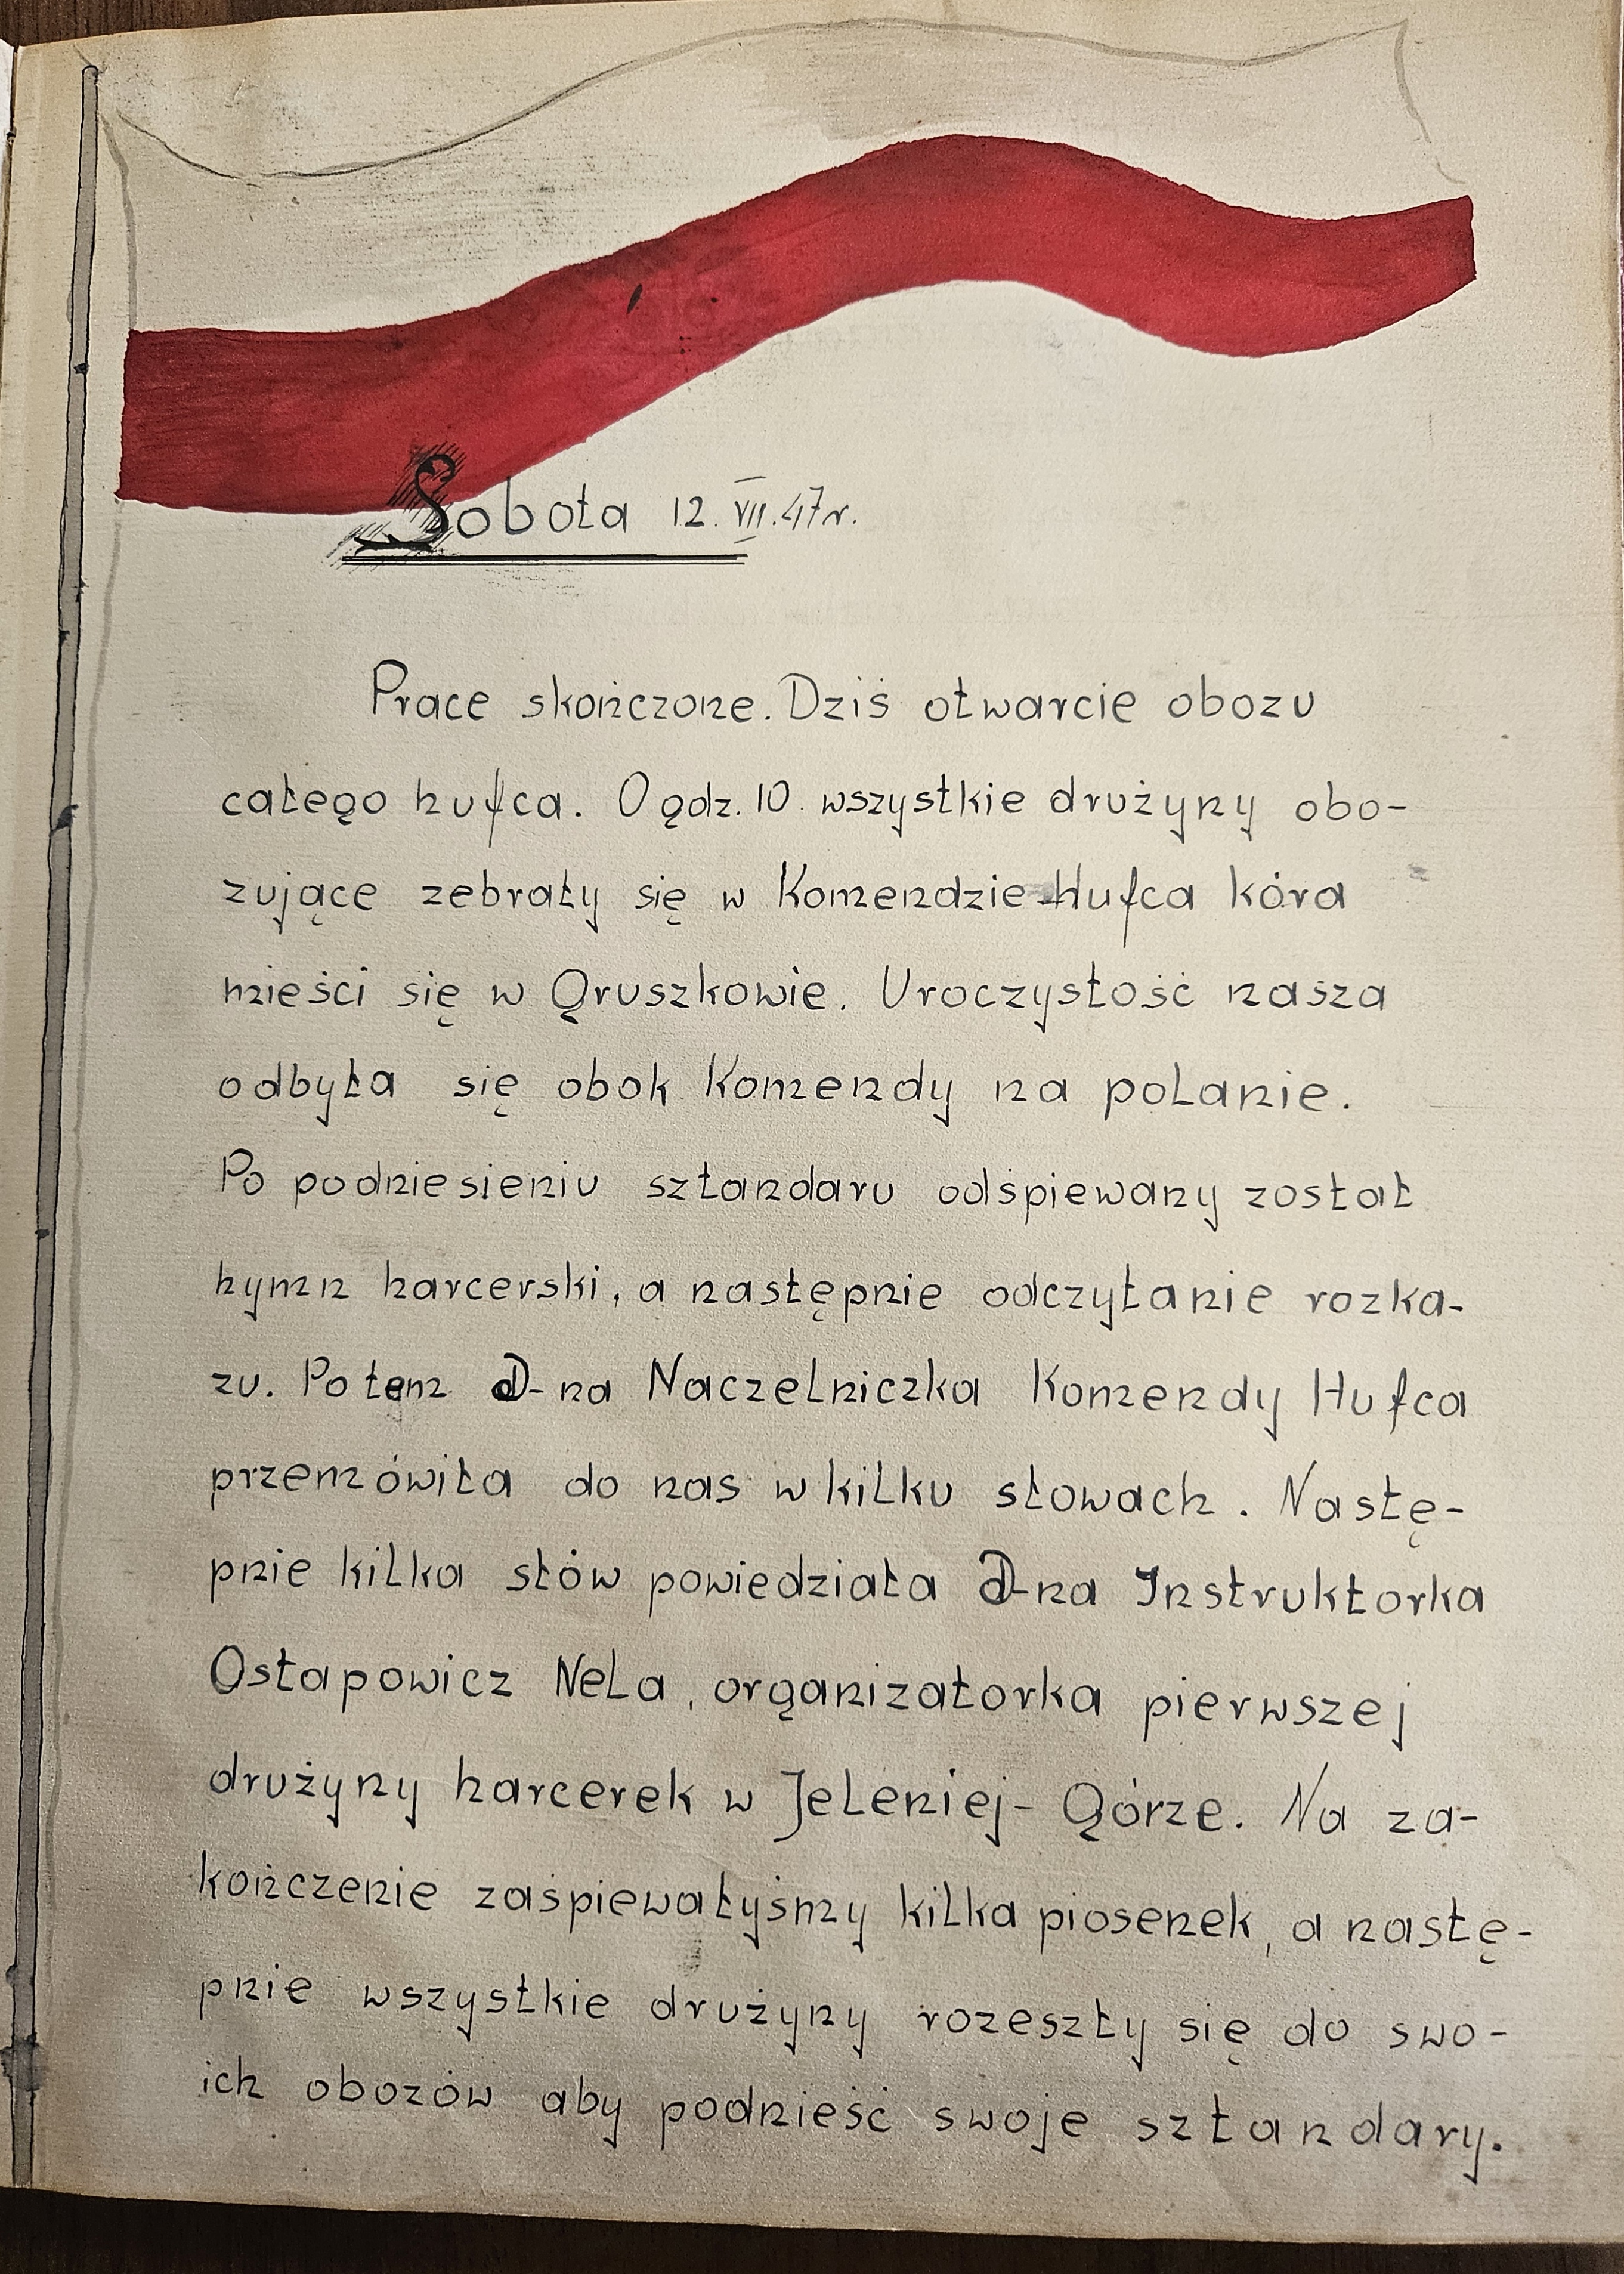 Sobota 12.VII.47r.
Prace skończone. Dziś otwarcie obozu
całego hufca. O godz. 10. wszystkie drużyny obo-
zujące zebrały się w Komendzie Hufca kóra
mieści się w Gruszkowie. Uroczystość nasza
odbyła się obok Komendy na polanie.
Po podniesieniu sztandaru odśpiewany został
hymn harcerski, a następnie odczytanie rozka-
zu. Potem D-na Naczelniczka Komendy Hufca
przemówiła do nas w kilku słowach. Nastę-
pnie kilka słów powiedziała D-na Instruktorka
Ostapowicz Nela, organizatorka pierwszej
drużyny harcerek w Jeleniej-Górze. Na za-
kończenie zaśpiewałyśmy kilka piosenek, a nastę-
pnie wszystkie drużyny rozeszły się do swo-
ich obozów aby podnieść swoje sztandary.